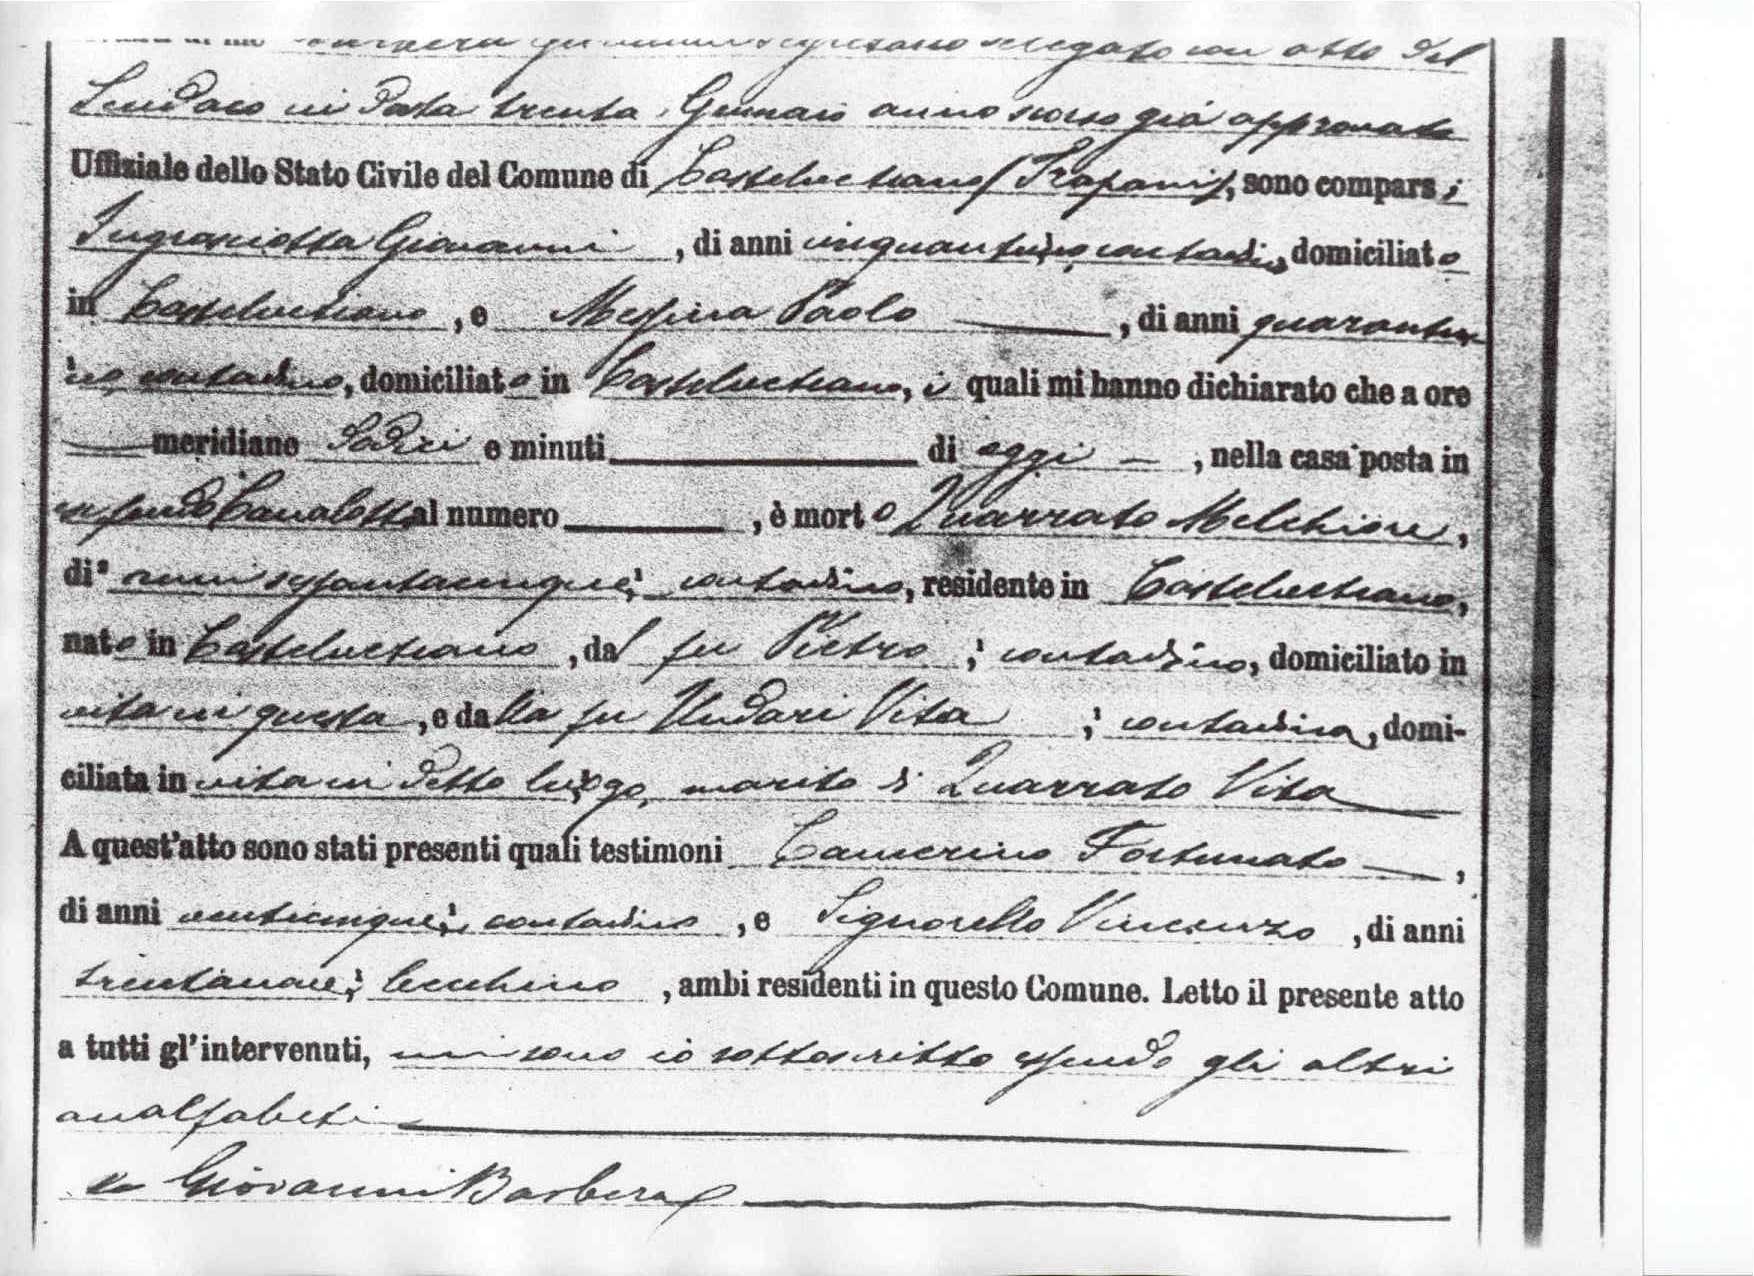 Barbera Giovanni segretario delegato con atto del
Sindaco in data trenta Gennaio anno scorso già approvato
Uffiziale dello Stato Civile del Comune di Castelvetrano (Trapani), sono comparsi
Ingrasciotta Giovanni, di anni cinquantuno, contadino, domiciliato
in Castelvetrano, e Messina Paolo, di anni quarantu
no, contadino, domiciliato in Castelvetrano, i quali mi hanno dichiarato che a ore
meridiane sedici e minuti di oggi, nella casa posta in
al numero, è morto Quarrato Melchiore,
di anni sessantacinque, contadino, residente in Castelvetrano,
nato in Castelvetrano, dal fu Pietro, contadino, domiciliato in
vita in questa, e dalla fu Undari Vita, contadina, domi-
ciliata in vita in detto luogo, marito di Quarrato Vita
A quest'atto sono stati presenti quali testimoni Camerino Fortunato,
di anni venticinque, contadino, e Signorello Vincenzo, di anni
trentanove, ambi residenti in questo Comune. Letto il presente atto
a tutti gl'intervenuti, mi sono io sottoscritto essendo gli altri
analfabeti
Giovanni Barbera